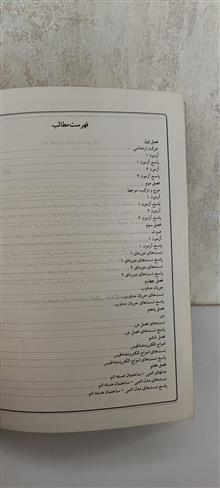 فهرست مطالب
فصل اول
حرکت ارتعاشی
آزمون ۱
پاسخ آزمون ۱
آزمون ۲
پاسخ آزمون ۲
فصل دوم
موج و ترکیب موجها
آزمون ۱
پاسخ آزمون ۱
آزمون ۲
پاسخ آزمون ۲
فصل سوم
صوت
آزمون ۱
پاسخ آزمون ۱
تست‌های دوره‌ای ۱
پاسخ تست‌های دوره‌ای ۱
تست‌های دوره‌ای ۲
پاسخ تست‌های دوره‌ای ۲
فصل چهارم
جریان متناوب
تست‌های جریان متناوب
پاسخ تست‌های جریان متناوب
فصل پنجم
نور
تست‌های فصل نور
پاسخ تست‌های فصل نور
فصل ششم
امواج الکترومغناطیس
تست‌های امواج الکترومغناطیس
پاسخ تست‌های امواج الکترومغناطیس
فصل هفتم
مدلهای اتمی - ساختمان هسته اتم
تست‌های مدل اتمی - ساختمان هسته اتم
پاسخ تست‌های مدل اتمی - ساختمان هسته اتم